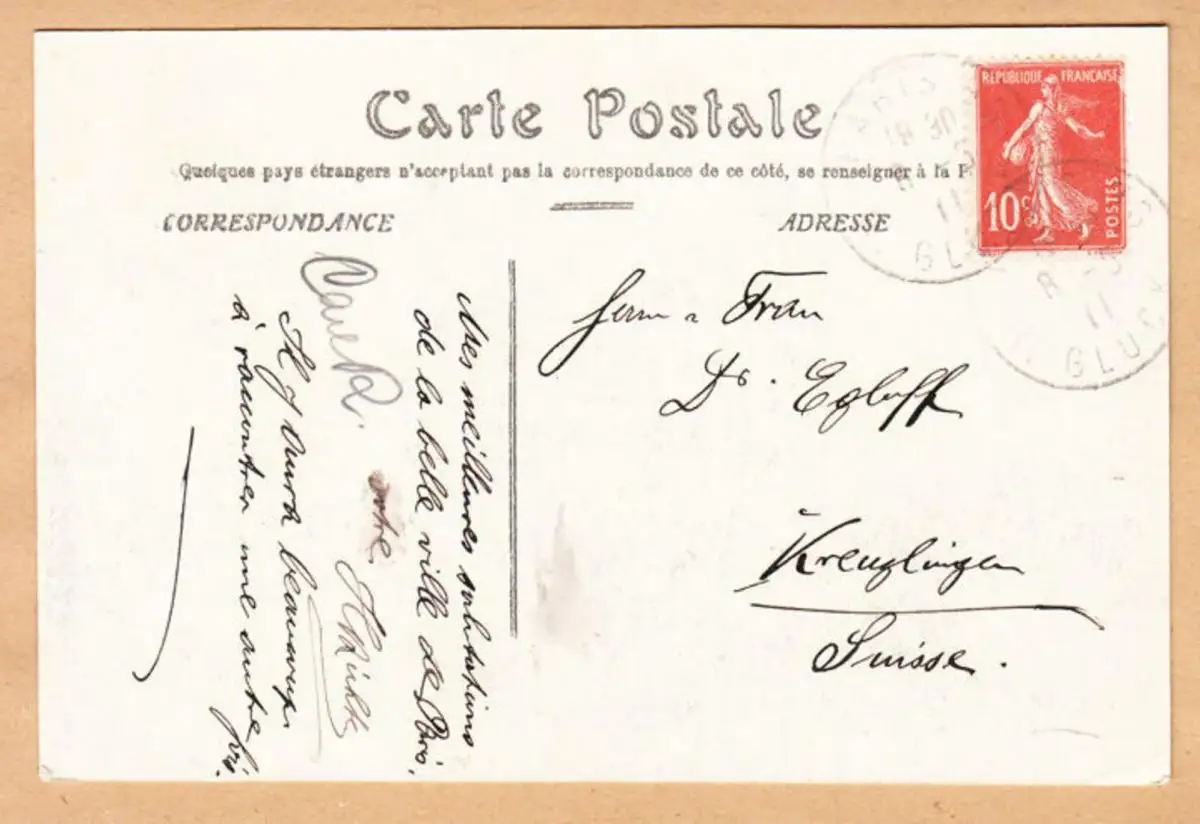 Carte Postale
Quelques pays étrangers n'acceptant pas la correspondance de ce côté, se renseigner à la P
CORRESPONDANCE
ADRESSE
RÉPUBLIQUE FRANÇAISE
10c
POSTES
PARIS
18 30
8
11
GLUCK
8
11
GLUCK
Mes meilleures salutations
de la belle ville de Paris.
Il y aura beaucoup
à raconter une autre fois.
Herrn u Frau
Dr. Egloff
Kreuzlingen
Suisse.